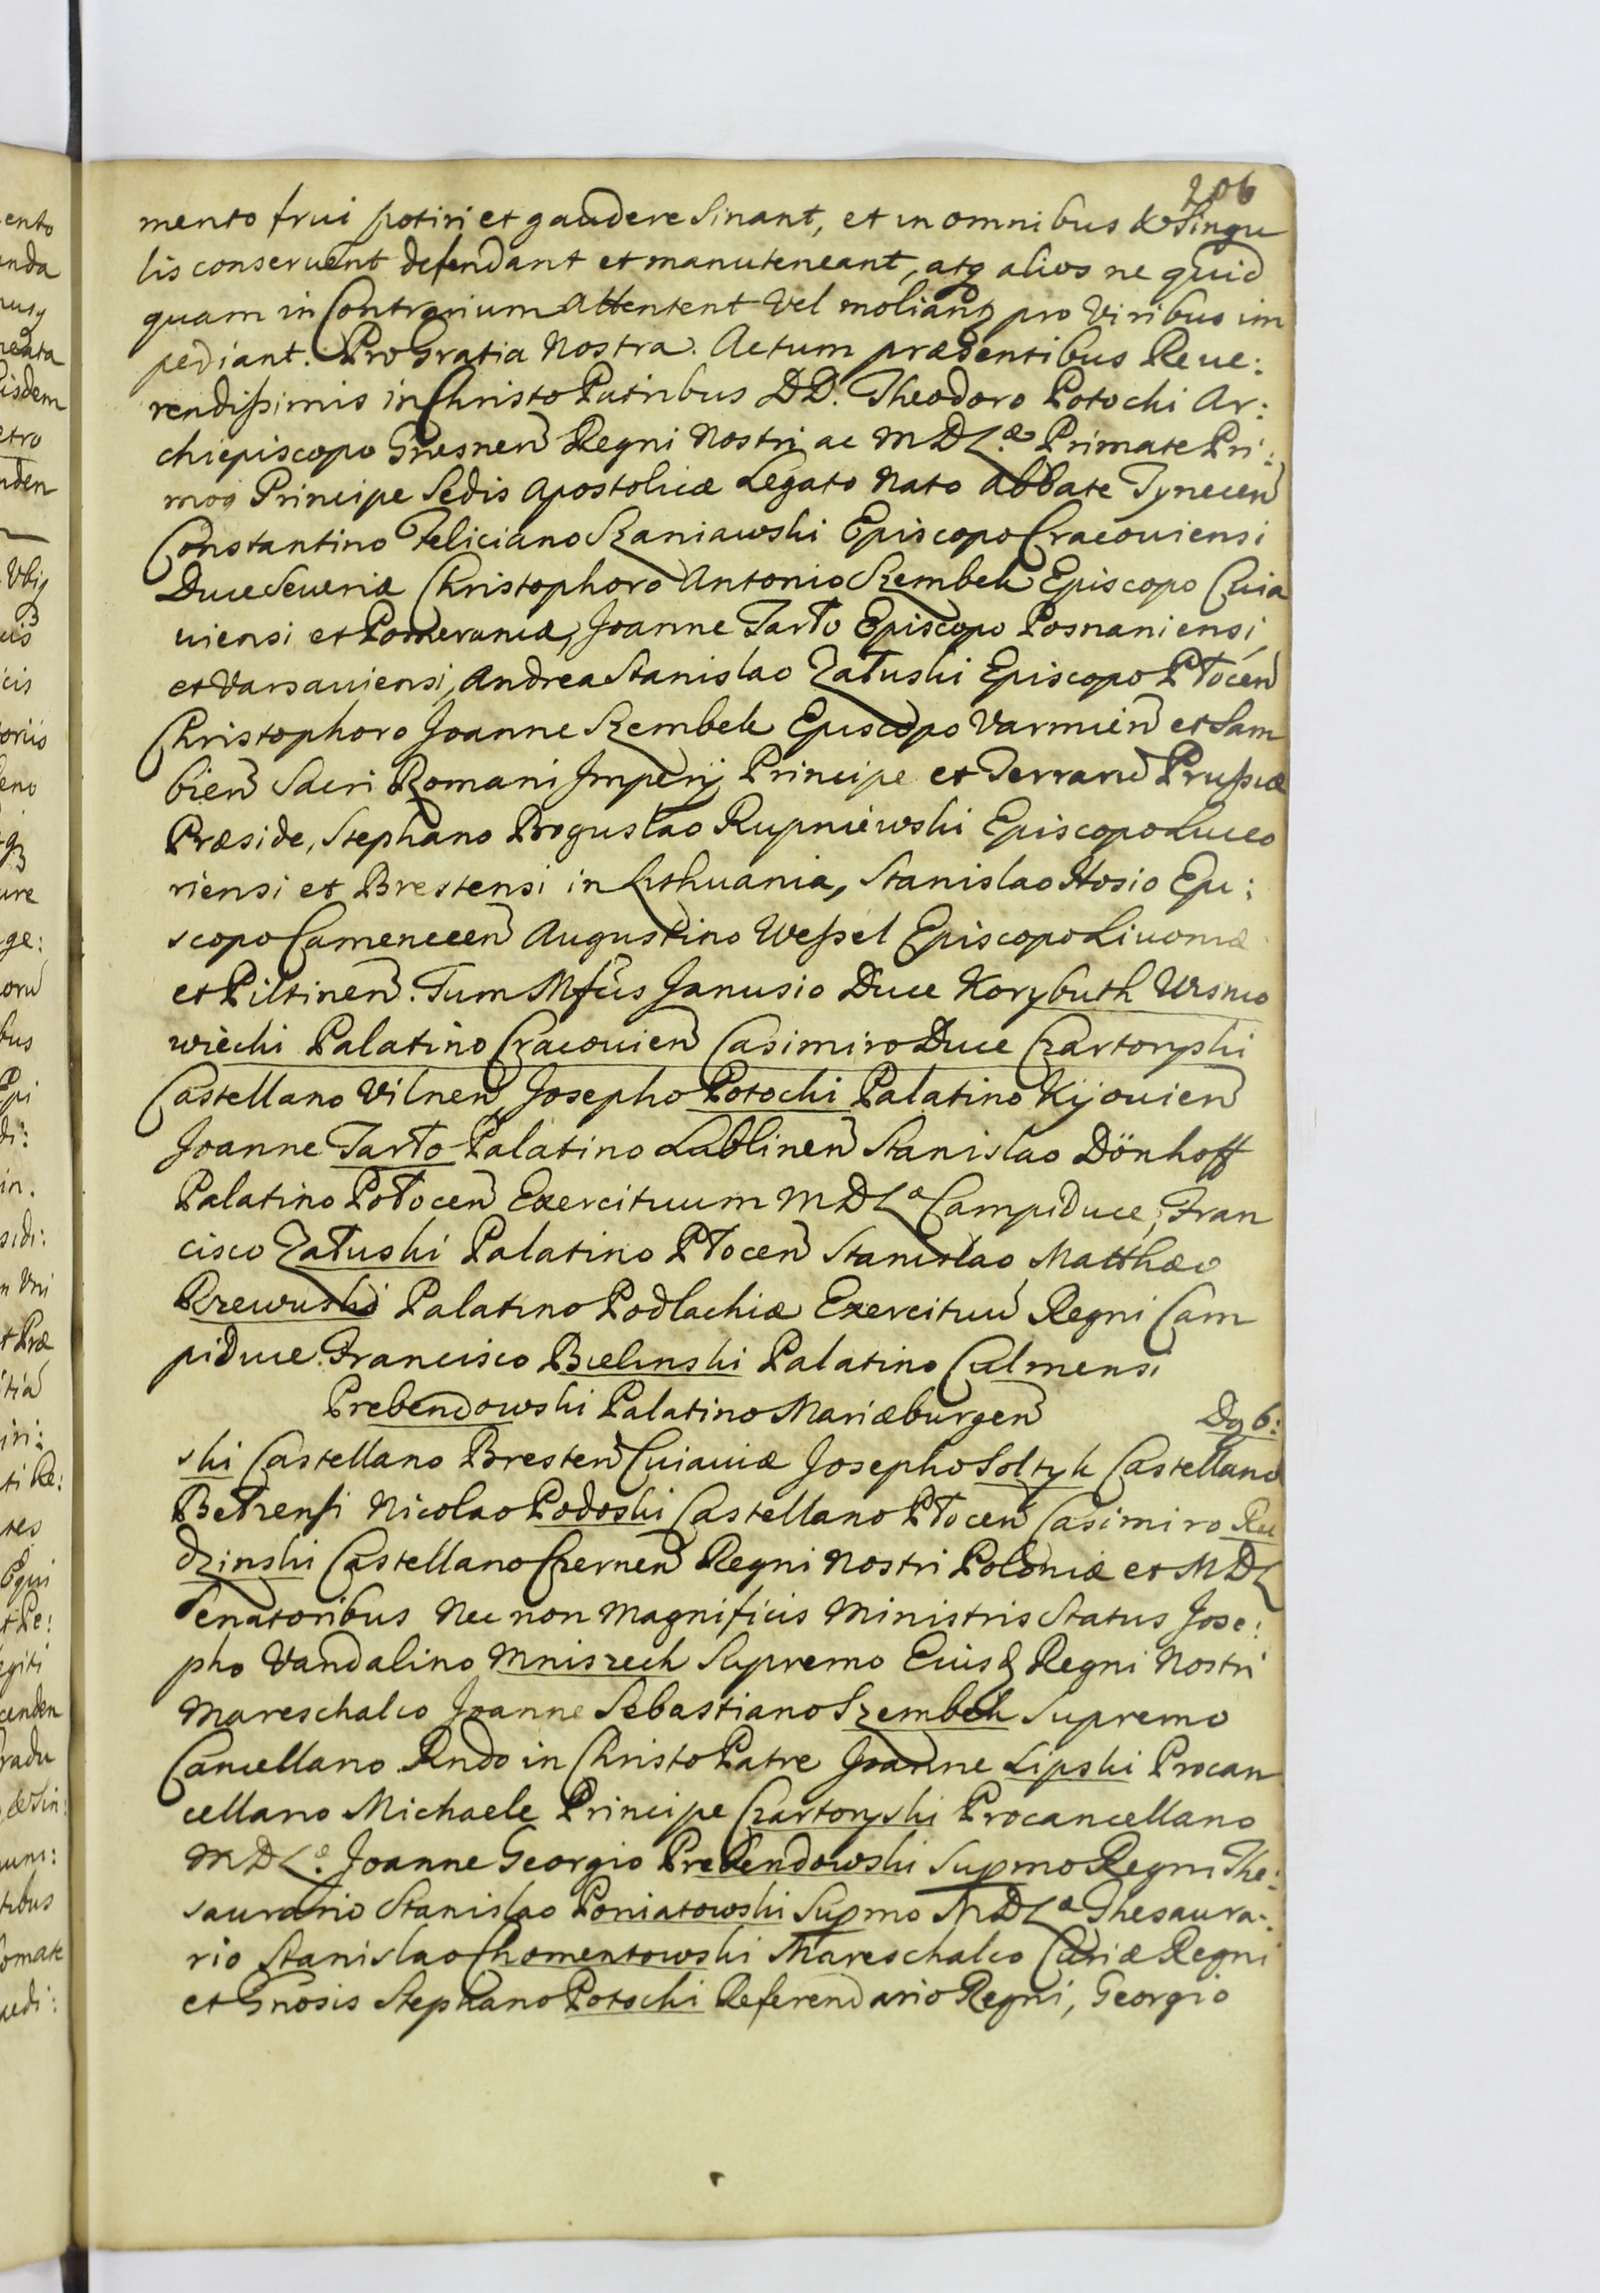 206
mento frui potiri et gaudere Sinant, et in omnibus & Singu
lis conseruent defendant et manuteneant, atq alios ne quid
quam in Contrarium attentent vel moliant pro Viribus im
pediant. Pro Gratia Nostra. Actum præsentibus Reue:
rendißimis in Christo Patribus DD. Theodoro Potocki Ar:
chiepiscopo Gnesnen Regni Nostri ac MDLæ Primate Pri:
moq Principe Sedis Apostolicæ Legato Nato Abbate Tynecen
Constantino Feliciano Szaniawski Episcopo Cracouiensi
Duce Seueriæ Christophoro Antonio Szembek Episcopo Cuia
uiensi et Pomeraniæ, Joanne Tarło Episcopo Posnaniensi
et Varsauiensi, Andrea Stanislao Załuski Episcopo Płocen
Christophoro Joanne Szembek Episcopo Varmien et Sam
bien Sacri Romani Imperij Principe et Terraru Prußiæ
Præside, Stephano Boguslao Rupniewski Episcopo Luceo
riensi et Brestensi in Lithuania, Stanislao Hosio Epi:
scopo Camenecen Augustino Weßel Episcopo Liuoniæ
et Piltinen. Tum Mfcis Janusio Duce Korybuth Wisnio
wiecki Palatino Cracouien Casimiro Duce Czartoryski
Castellano Vilnen, Josepho Potocki Palatino Kijouien
Joanne Tarło Palatino Lublinen Stanislao Dönhoff
Palatino Połocen Exercituum MDLæ Campiduce, Fran
cisco Załuski Palatino Płocen Stanislao Matthæo
Rzewuski Palatino Podlachiæ Exercituu Regni Cam
piduce. Francisco Bielinski Palatino Culmensi
Prebendowski Palatino Mariæburgen Dą b:
ski Castellano Bresten Cuiauiæ Josepho Soltyk Castellano
Bełzensi Nicolao Podoski Castellano Płocen Casimiro Ru
dzinski Castellano Czernen Regni Nostri Poloniæ et MDL
Senatoribus Nec non Magnificis Ministris Status Jose:
pho Vandalino Mniszech Supremo Eiusd Regni Nostri
Mareschalco Joanne Sebastiano Szembek Supremo
Cancellario Rndo in Christo Patre Joanne Lipski Procan
cellario Michaele Principe Czartoryski Procancellario
MDLæ. Joanne Georgio Prebendowski Supmo Regni The:
saurario Stanislao Poniatowski Supmo MDLæ Thesaura:
rio Stanislao Chomentowski Mareschalco Curiæ Regni
et Gnosis Stephano Potocki Referendario Regni, Georgio